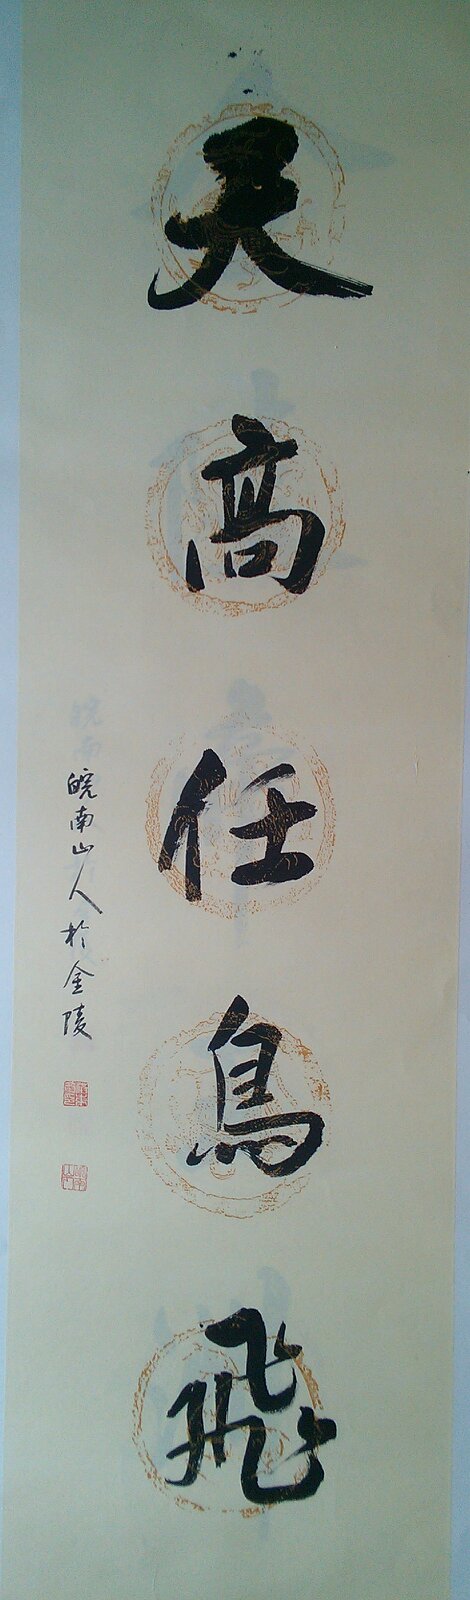 天高任鳥飛
皖南山人於金陵